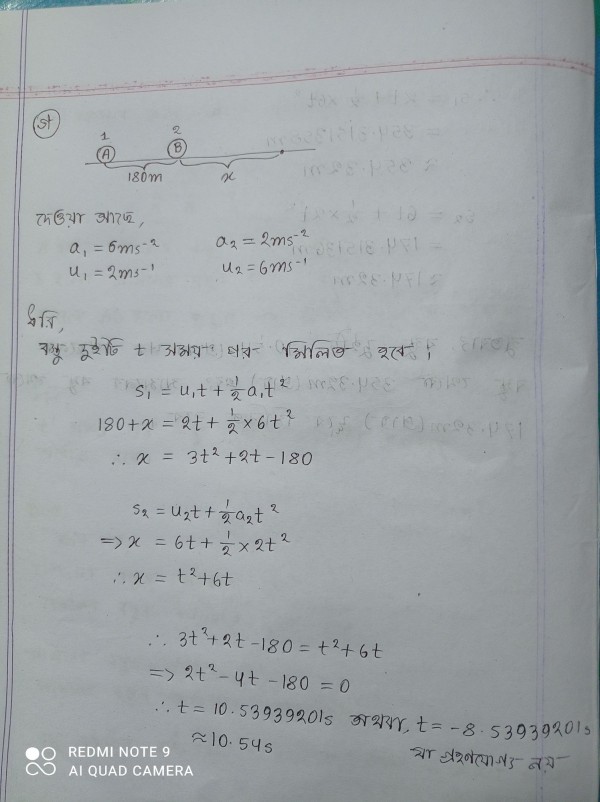 51
1 2
A B
180m x
দেওয়া আছে,
a₁ = 6ms⁻² a₂ = 2ms⁻²
u₁ = 2ms⁻¹ u₂ = 6ms⁻¹
ধরি,
বস্তু দুইটি t সময় পর মিলিত হবে।
s₁ = u₁t + ½a₁t²
180+x = 2t + ½×6t²
∴ x = 3t²+2t-180
s₂ = u₂t + ½a₂t²
=> x = 6t + ½×2t²
∴ x = t²+6t
∴ 3t²+2t-180 = t²+6t
=> 2t²-4t-180 = 0
∴ t = 10.53939201s অথবা, t = -8.53939201s
≈10.54s যা গ্রহণযোগ্য নয়
REDMI NOTE 9
AI QUAD CAMERA